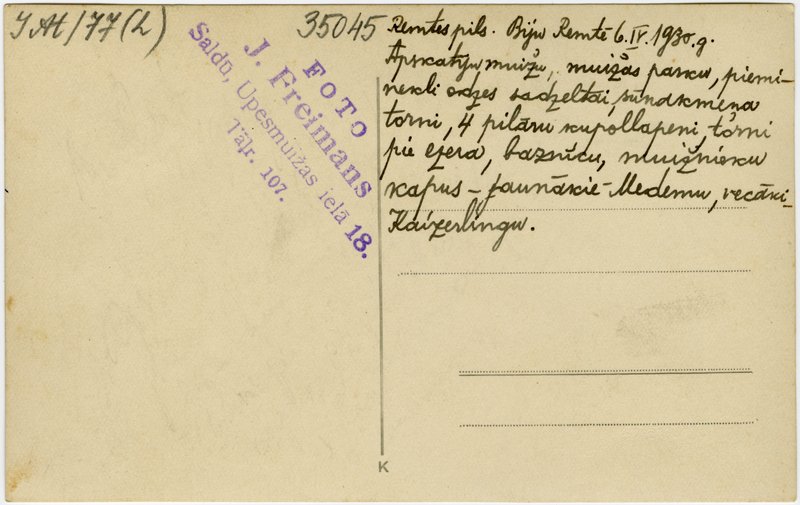 35045
FOTO
J. Freimans
Saldū, Upesmuižas ielā 18.
Tāļr. 107.
Remtes pils. Biju Remtē 6.IV.1930.g.
Apskatīju muižu, muižas parku, piemi-
nekli odzes sadzeltai, sundkmeņa
torni, 4 pilāru kupollapeni, torni
pie ezera, baznīcu, muižnieku
kapus – jaunākie - Medemu, vecāki-
Kaizerlingu.
K